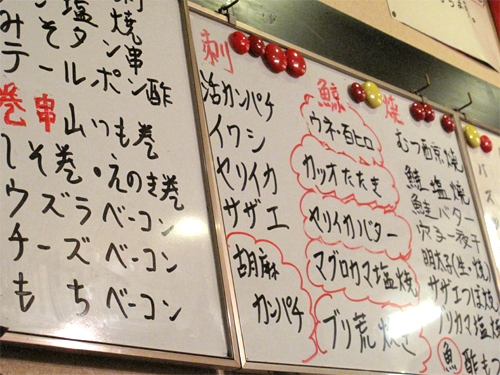 塩タン
テールポン酢
巻串
山いも巻
しそ巻・えのき巻
ウズラベーコン
チーズベーコン
もちベーコン
刺
活カンパチ
イワシ
ヤリイカ
サザエ
胡麻
カンパチ
鯨
ウネ・百ヒロ
カツオたたき
ヤリイカバター
マグロカマ塩焼
ブリ荒焼き
焼
むつ西京焼
鮭塩焼
鮭バター
明太子(生・焼)
サザエつぼ焼
ブリカマ塩
魚
酢も